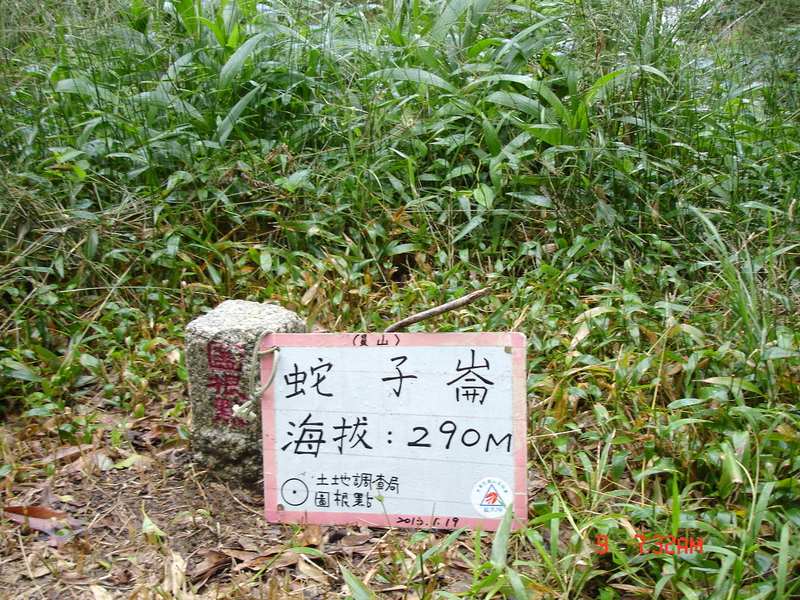 圖根點
(昆山)
蛇子崙
海拔:290M
土地調查局
圖根點
2013.1.19
9 7:32AM